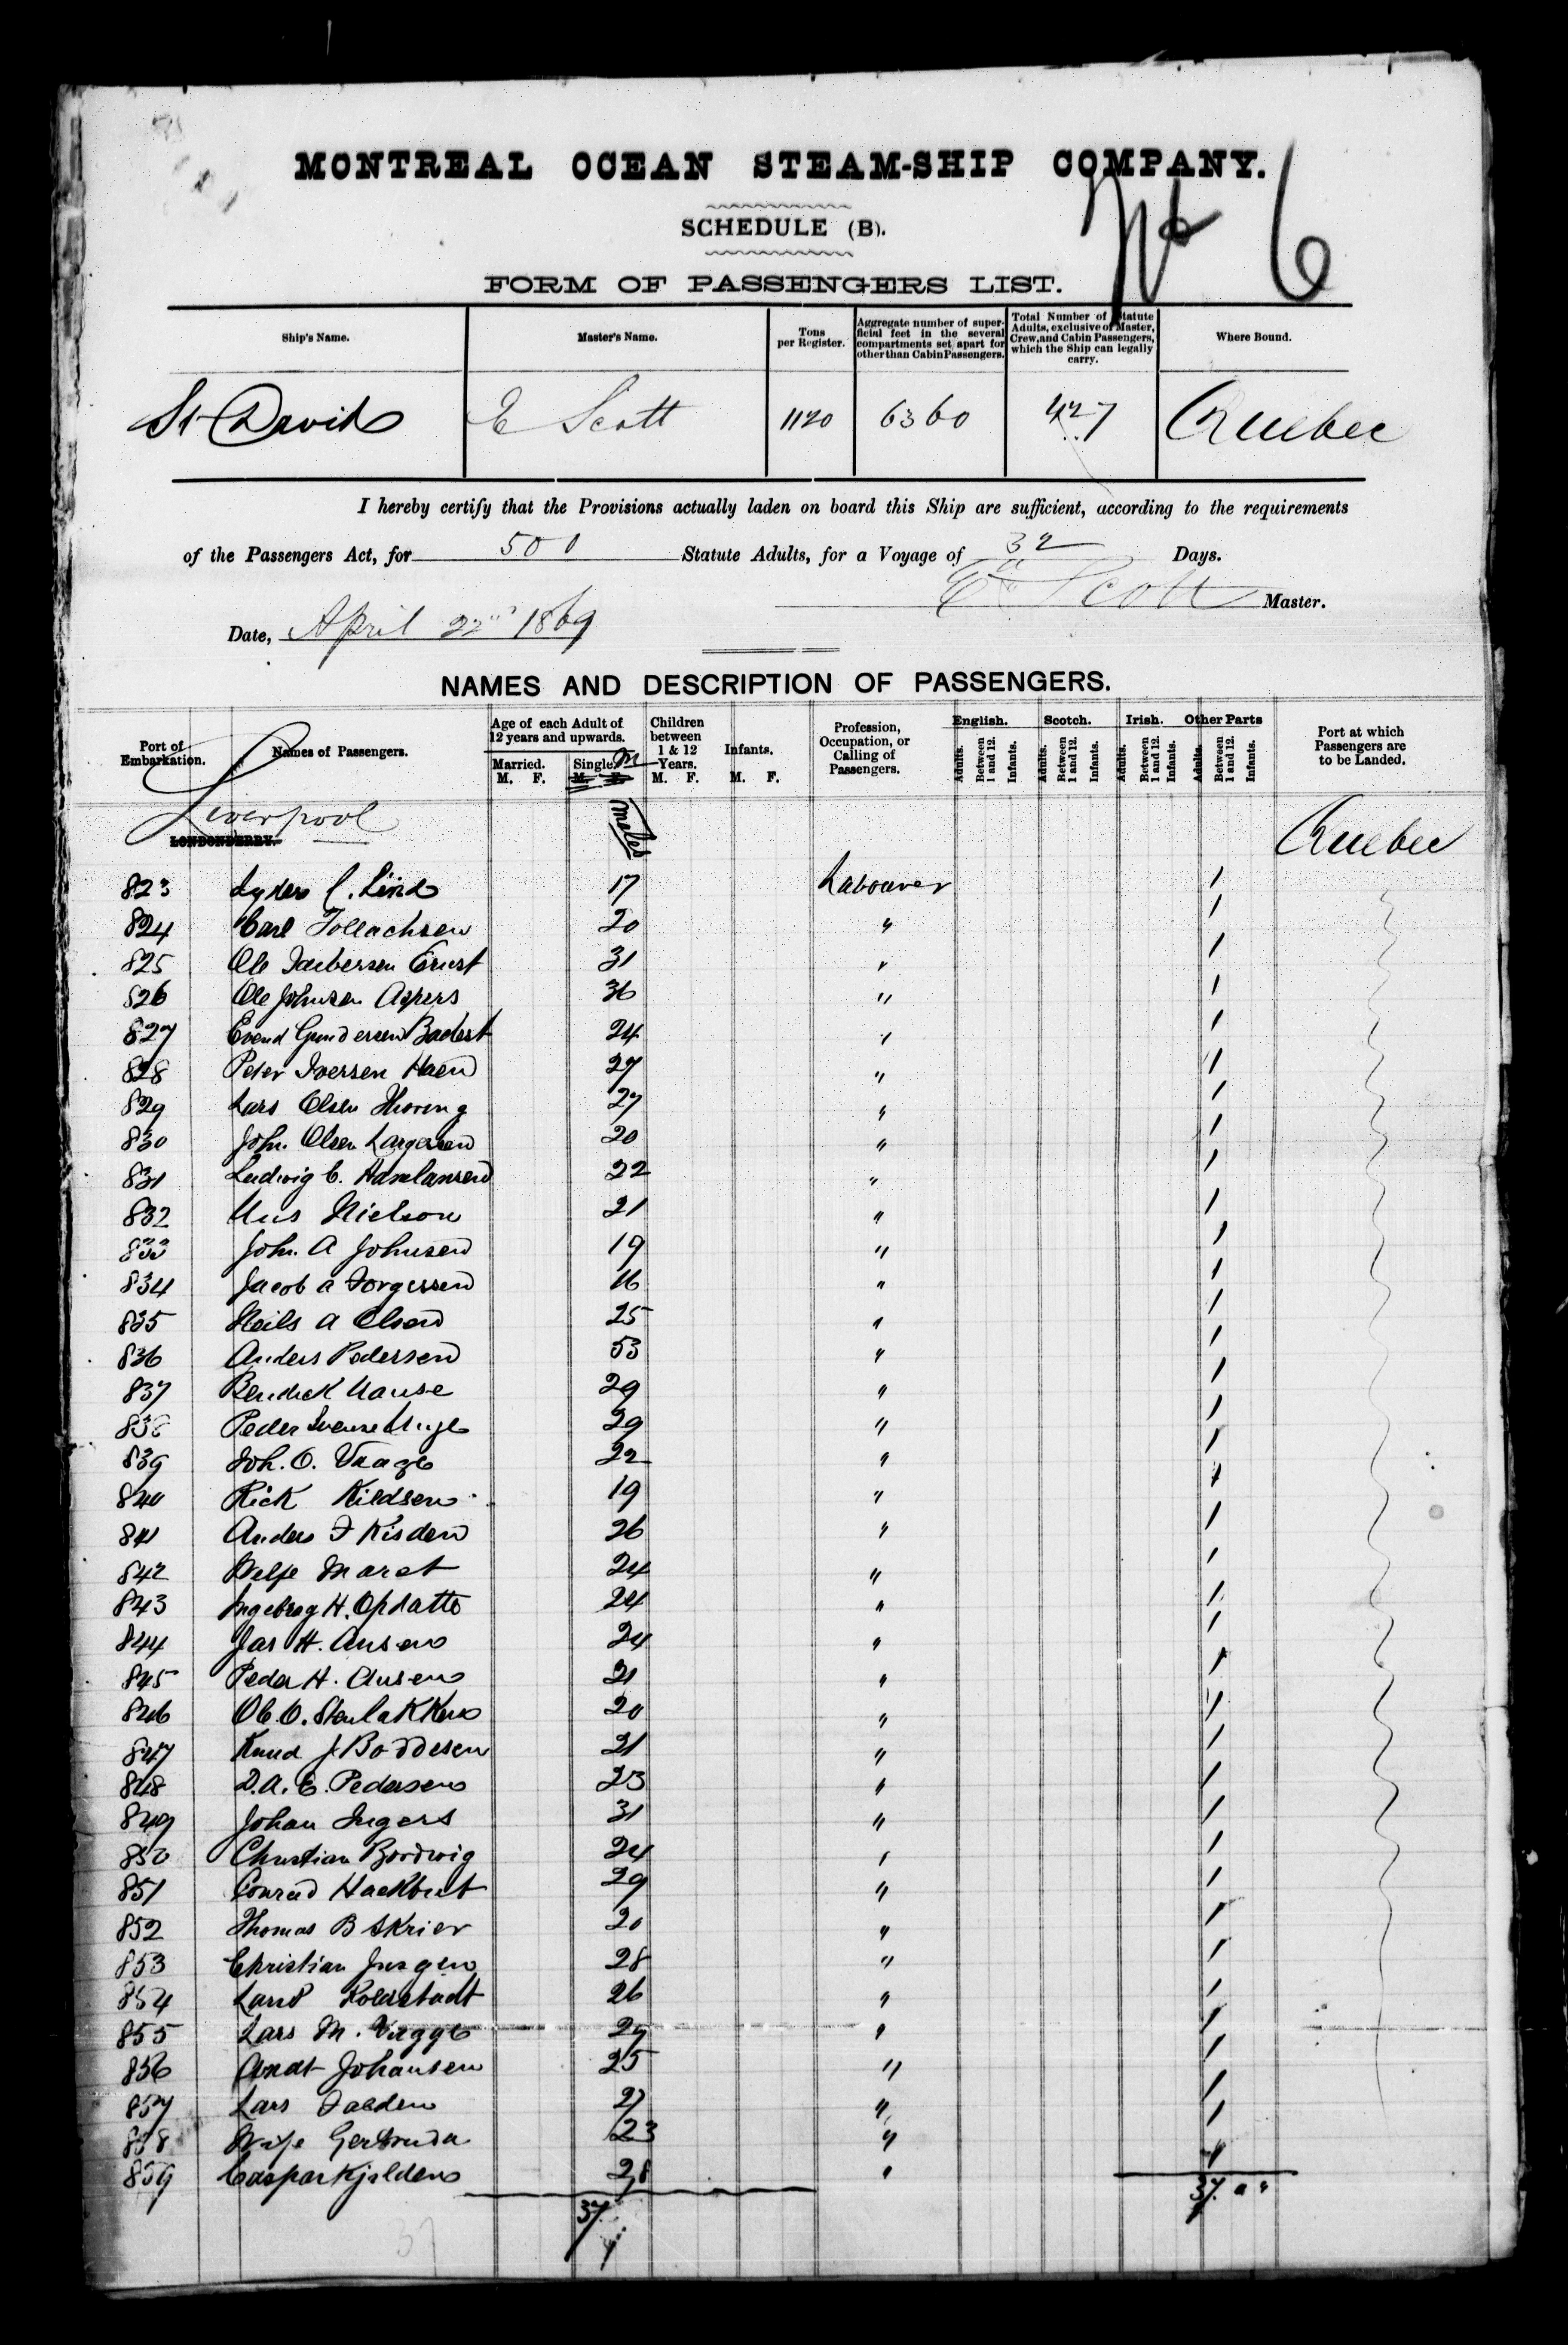 MONTREAL OCEAN STEAM-SHIP COMPANY.
No 6
SCHEDULE (B).
FORM OF PASSENGERS LIST.
Ship's Name. Master's Name. Tons per Register. Aggregate number of superficial feet in the several compartments set apart for other than Cabin Passengers. Total Number of Statute Adults, exclusive of Master, Crew, and Cabin Passengers, which the Ship can legally carry. Where Bound.
St David E Scott 1120 6360 427 Quebec
I hereby certify that the Provisions actually laden on board this Ship are sufficient, according to the requirements
of the Passengers Act, for 500 Statute Adults, for a Voyage of 32 Days.
E Scott Master.
Date, April 22nd 1869
NAMES AND DESCRIPTION OF PASSENGERS.
Port of Embarkation. Names of Passengers. Age of each Adult of 12 years and upwards. Married. M. F. Single. M. F. Children between 1 & 12 Years. M. F. Infants. M. F. Profession, Occupation, or Calling of Passengers. English. Adults. Between 1 and 12. Infants. Scotch. Adults. Between 1 and 12. Infants. Irish. Adults. Between 1 and 12. Infants. Other Parts Adults. Between 1 and 12. Infants. Port at which Passengers are to be Landed.
Liverpool Males Quebec
LONDONDERRY.
823 Lyder C. Lind 17 Labourer 1
824 Carl Tollachsen 20 " 1
825 Ole Ernst 31 " 1
826 Ole Johnsen Aspers 36 " 1
827 Evend Gundersen 24 " 1
828 Peter Iversen Haen 27 " 1
829 Lars Olsen Thoreng 27 " 1
830 Joh. Olsen 20 " 1
831 Ludwig C. 22 " 1
832 Nielson 21 " 1
833 Joh. A Johnsen 19 " 1
834 Jacob A Torgersen 16 " 1
835 Neils A Olsen 25 " 1
836 Anders Pedersen 53 " 1
837 Bendick 29 " 1
838 Peder 29 " 1
839 Joh. O. Vaage 22 " 1
840 Rick Kildsen 19 " 1
841 Anders I Kisden 26 " 1
842 Wife Maret 24 " 1
843 Ingebreg H. Opdatte 24 " 1
844 Jas H. Ansen 24 " 1
845 Peder H. Ansen 21 " 1
846 Ole O. 20 " 1
847 Knud J Boddesen 21 " 1
848 D. A. E. Pedersen 23 " 1
849 Johan Ingers 31 " 1
850 Christian Bordwig 24 " 1
851 Conrad Hackbart 29 " 1
852 Thomas B Skrier 20 " 1
853 Christian Jurgen 28 " 1
854 Lars Kolerstadt 26 " 1
855 Lars M. Vugge 29 " 1
856 Arndt Johansen 25 " 1
857 Lars Falden 27 " 1
858 Wife Gertruda 23 " 1
859 Caspar Kjelden 28 " 1
37 37